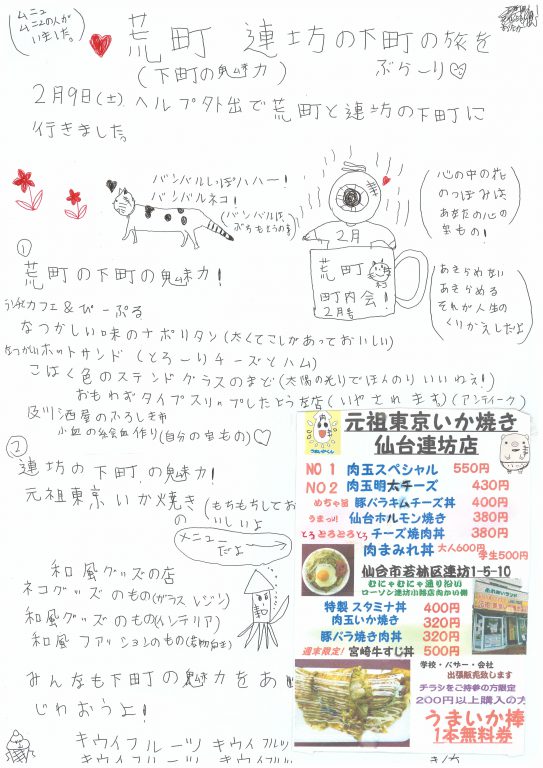 ムニュ
ムニュの人が
いました。
荒町 連坊の下町の旅を
(下町の魅力) ぶら〜り♡
2月9日(土) ヘルプ外出で荒町と連坊の下町に
行きました。
バンバルしっぽハハー!
バンバルネコ!
2月
荒町
町内会!
2月号
心の中の花
のつぼみは
あなたの心の
宝もの!
あきらめない
あきらめる
それが人生の
くりかえしだよ
①
荒町の下町の魅力!
カフェ&ぴーぷる
なつかしい味のナポリタン(太くてこしがあっておいしい)
なつかしいホットサンド (とろーりチーズとハム)
こはく色のステンドグラスのまど(太陽の光りでほんのりいいねぇ!)
おもわずタイプスリップしたとうな店(いやされます)(アンティーク)
及川酒屋のふろしき市
小皿の絵皿作り(自分の宝もの)♡
②
連坊の下町の魅力!
元祖東京いか焼き(もちもちしてお
の いしいよ
メニュー
だよ
和風グッズの店
ネコグッズのもの(ガラスレジン)
和風グッズのもの(インテリア)
和風ファッションのもの
みんなも下町の魅力をあ
じわおうよ!
キウイフルーツ キウイフルーツ
元祖東京いか焼き
仙台連坊店
うまいかくん
NO1 肉玉スペシャル 550円
NO2 肉玉明太チーズ 430円
めちゃ旨 豚バラキムチーズ丼 400円
うまっ!! 仙台ホルモン焼き 380円
とろとろとろとろ チーズ焼肉丼 380円
肉まみれ丼 大人600円 学生500円
仙台市若林区連坊1-5-10
むにゃむにゃ通り沿い
ローソン連坊小路店向かい側
特製 スタミナ丼 400円
肉玉いか焼き 320円
豚バラ焼き肉丼 320円
週末限定! 宮崎牛すじ丼 500円
学校・バザー・会社
出張販売致します
チラシをご持参の方限定
200円以上購入の方
うまいか棒
1本無料券